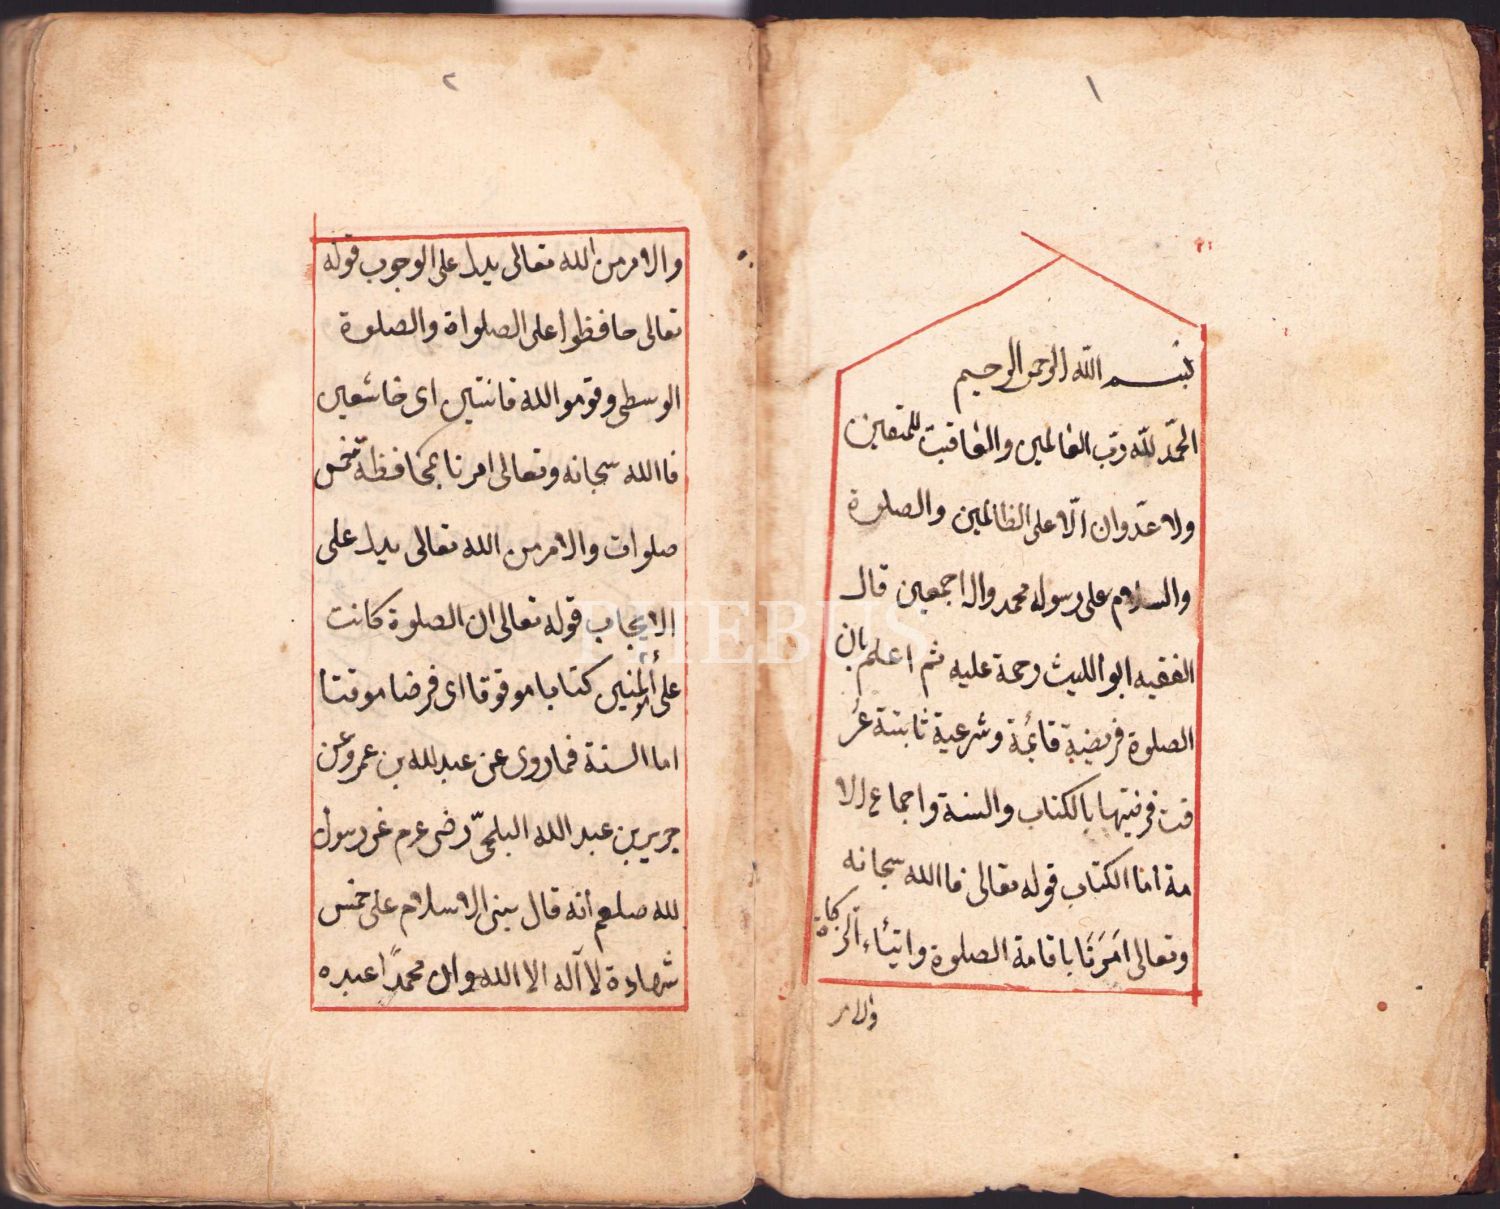 ١
بسم الله الرحمن الرحيم
الحمد لله رب العالمين والعاقبت للمتقين
ولا عدوان الا على الظالمين والصلوة
والسلام على رسوله محمد واله اجمعين قال
الفقيه ابو الليث رحمة عليه ثم اعلم بان
الصلوة فريضة قائمة وشرعية ثابتة عر
فت فرضيتها بالكتاب والسنة واجماع الا
مة اما الكتاب قوله تعالى فا الله سبحانه
وتعالى امرنا باقامة الصلوة وايتاء الزكاة
والامر
٢
والامر من الله تعالى يدل على الوجوب قوله
تعالى حافظوا على الصلواة والصلوة
الوسطى وقومو الله قانتين اى خاشعين
فا الله سبحانه وتعالى امرنا بمحافظة خمس
صلوات والامر من الله تعالى يدل على
الايجاب قوله تعالى ان الصلوة كانت
على المؤمنين كتابا موقوقا اى فرضا موقتا
اما السنة فما روى عن عبد لله بن عمر وعن
جرير بن عبد الله البلجى رضى عرم عن رسول
لله صلعم انه قال بنى الاسلام على خمس
شهادة لا آله الا الله وان محمدًا عبده
PHEBUS